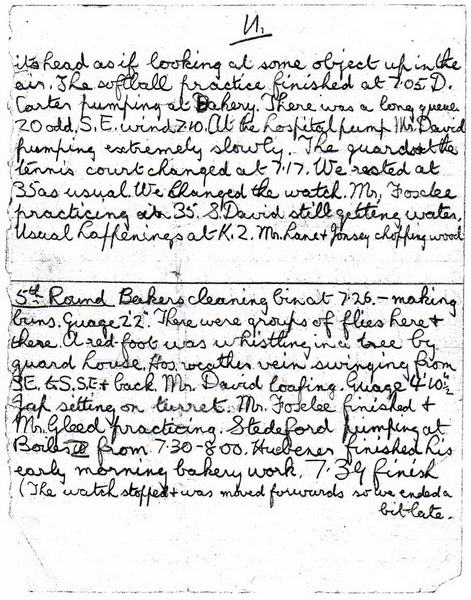 11.
its head as if looking at some object up in the
air. The softball practice finished at 7.05 D.
Carter pumping at Bakery. There was a long queue
20 odd. S.E. wind 7.10. At the hospital pump Mr. David
pumping extremely slowly. The guards at the
tennis court changed at 7.17. We rested at
35 as usual. We changed the watch. Mr. Foxlee
practicing in 35. S. David still getting water.
Usual happenings at K.2. Mr. Lane + Jonsey chopping wood
5th Round Bakers cleaning bin at 7.26. - making
buns. Guage 2'2". There were groups of flies here +
there. A red foot was whistling in a tree by
guard house. Hos. weather vein swinging from
SE. to S.SE + back. Mr. David loafing. Guage 4'10½
Jap sitting on turret. Mr. Foxlee finished +
Mr. Gleed practicing. Stedeford pumping at
Boiler II from 7.30-8.00. Huebener finished his
early morning bakery work. 7.39 finish
(The watch stopped + was moved forwards so we ended a
bit late.